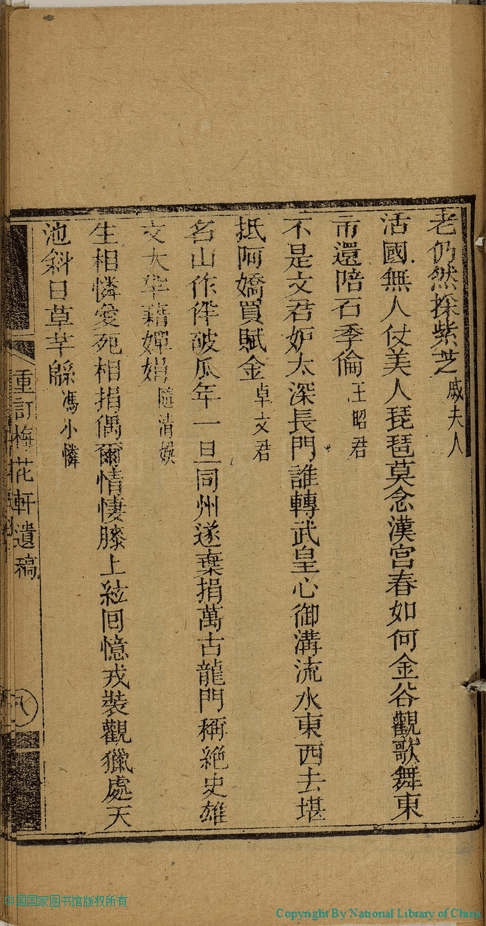 老仍然採紫芝戚夫人
活國無人仗美人琵琶莫念漢宮春如何金谷觀歌舞東
市還陪石季倫王昭君
不是文君妒太深長門誰轉武皇心御溝流水東西去堪
抵阿嬌買賦金卓文君
名山作伴破瓜年一旦同州遂棄捐萬古龍門稱絕史雄
文大半藉嬋娟隨清娛
生相憐愛死相捐偶爾情悽膝上絃回憶戎裝觀獵處天
池斜日草芊緜馮小憐
重訂梅花軒遺稿
八
中国国家图书馆版权所有
Copyright By National Library of China